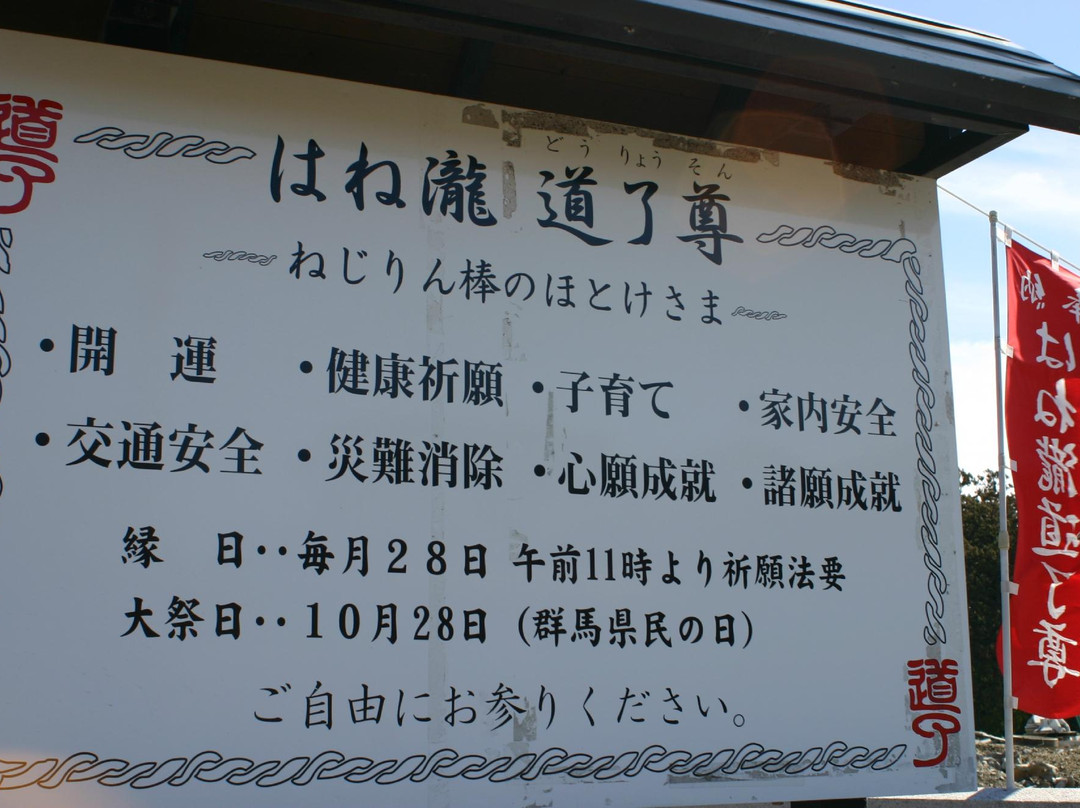 道了
どう りょう そん
はね瀧 道了尊
ねじりん棒のほとけさま
・開 運 ・健康祈願 ・子育て ・家内安全
・交通安全 ・災難消除 ・心願成就 ・諸願成就
縁 日‥毎月28日 午前11時より祈願法要
大祭日‥10月28日 (群馬県民の日)
ご自由にお参りください。
道了
奉納
はね瀧道了尊